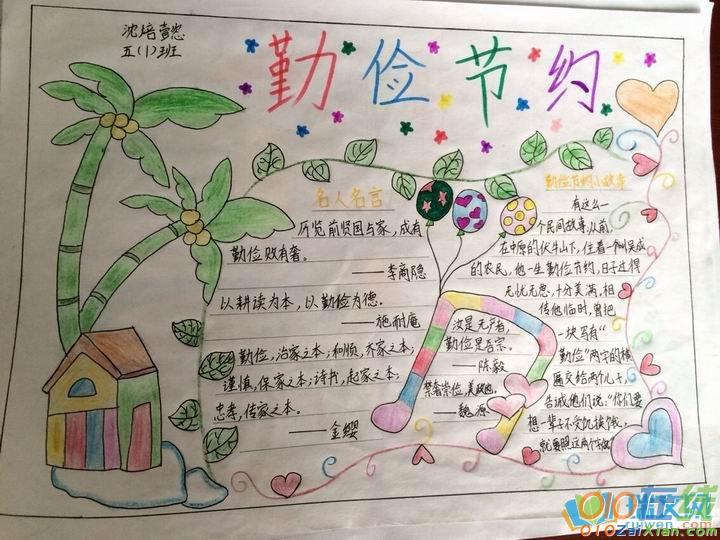 沈焙懿
五(1)班
勤俭节约
名人名言
厉览前贤国与家,成有
勤俭败有奢。
——李商隐
以耕读为本,以勤俭为德。
——施耐庵
勤俭,治家之本;和顺,齐家之本;
谨慎,保家之本;诗书,起家之本;
忠孝,传家之本。
——金缨
汝是无产者,
勤俭是吾宗。
——陈毅
禁奢崇俭,美政也,
——魏源
勤俭节约小故事
有这么一
个民间故事,从前,
在中原的伏牛山下,住着一个叫吴成
的农民,他一生勤俭节约,日子过得
无忧无虑,十分美满,相
传他临时,曾把
一块写有"
勤俭"两字的横
匾交给两个儿子,
告诫他们说:"你们要
想一辈子不受饥挨饿,
就要照这两个字做
010ZaiXian.com